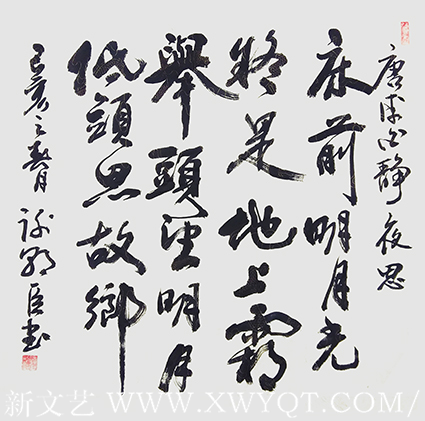 唐李白靜夜思
床前明月光
疑是地上霜
舉頭望明月
低頭思故鄉
己亥之春月 臣書
新文艺 WWW.XWYQT.COM/